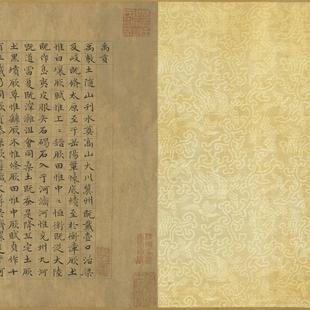 禹貢
禹敷土隨山刊木奠高山大川冀州既載壺口治梁
及岐既修太原至于岳陽覃懷底績至於衡漳厥土
惟白壤厥賦惟上二錯厥田惟中二恒衛既從大陸
既作島夷皮服夾右碣石入于河濟河惟兗州九河
既道雷夏既澤灉沮會同桑土既蠶是降丘宅土厥
土黑墳厥草惟繇厥木惟條厥田惟中下厥賦貞作十